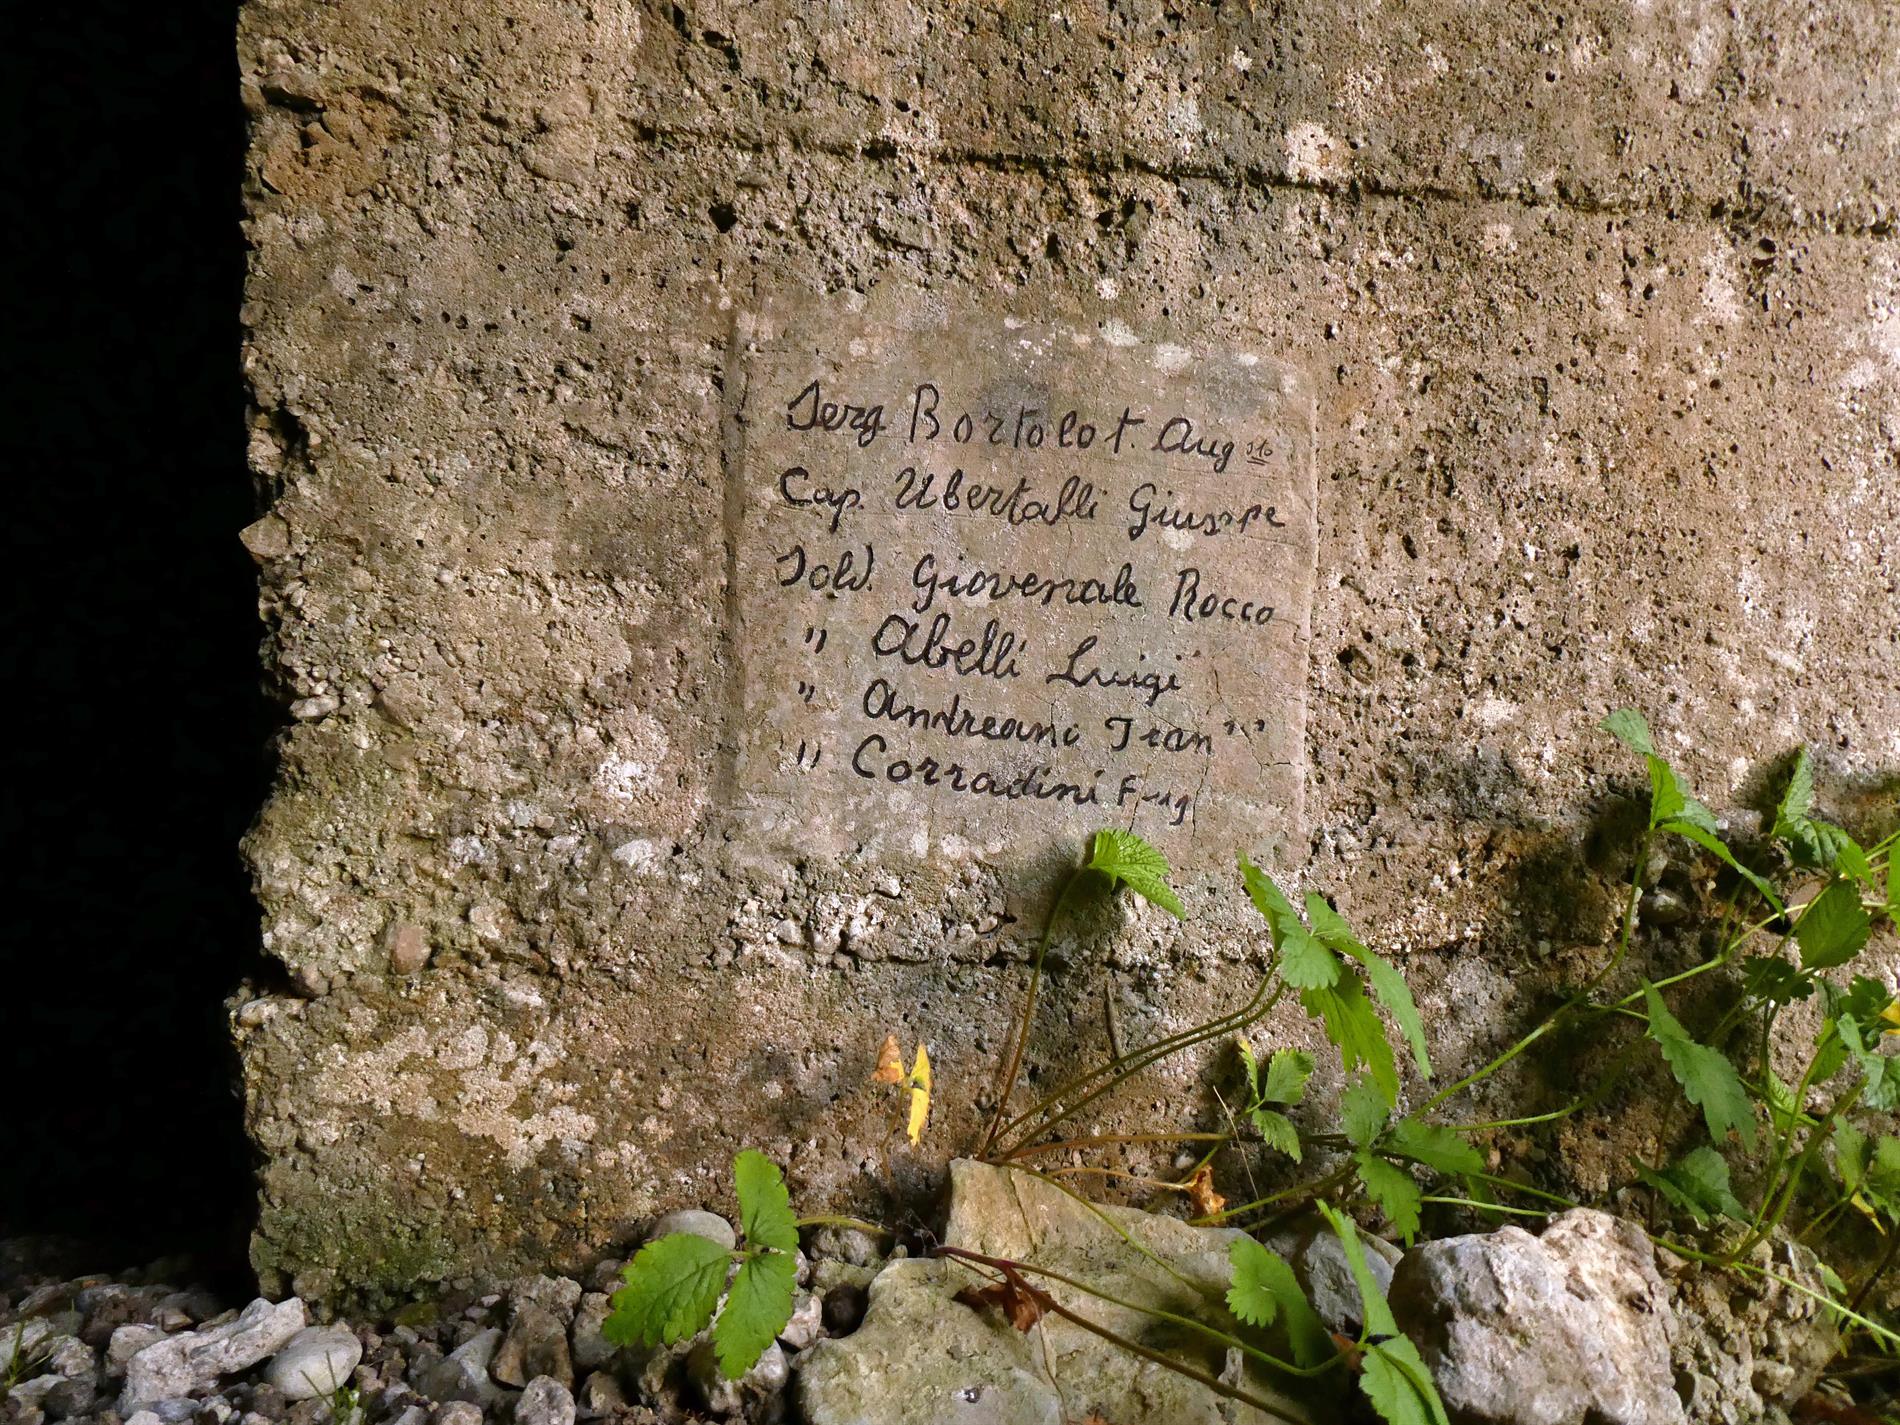 Serg. Bortolot. Aug sto
Cap. Ubertalli Giusppe
Sold. Giovenale Rocco
" Abelli Luigi
" Andreani Fran
" Corradini